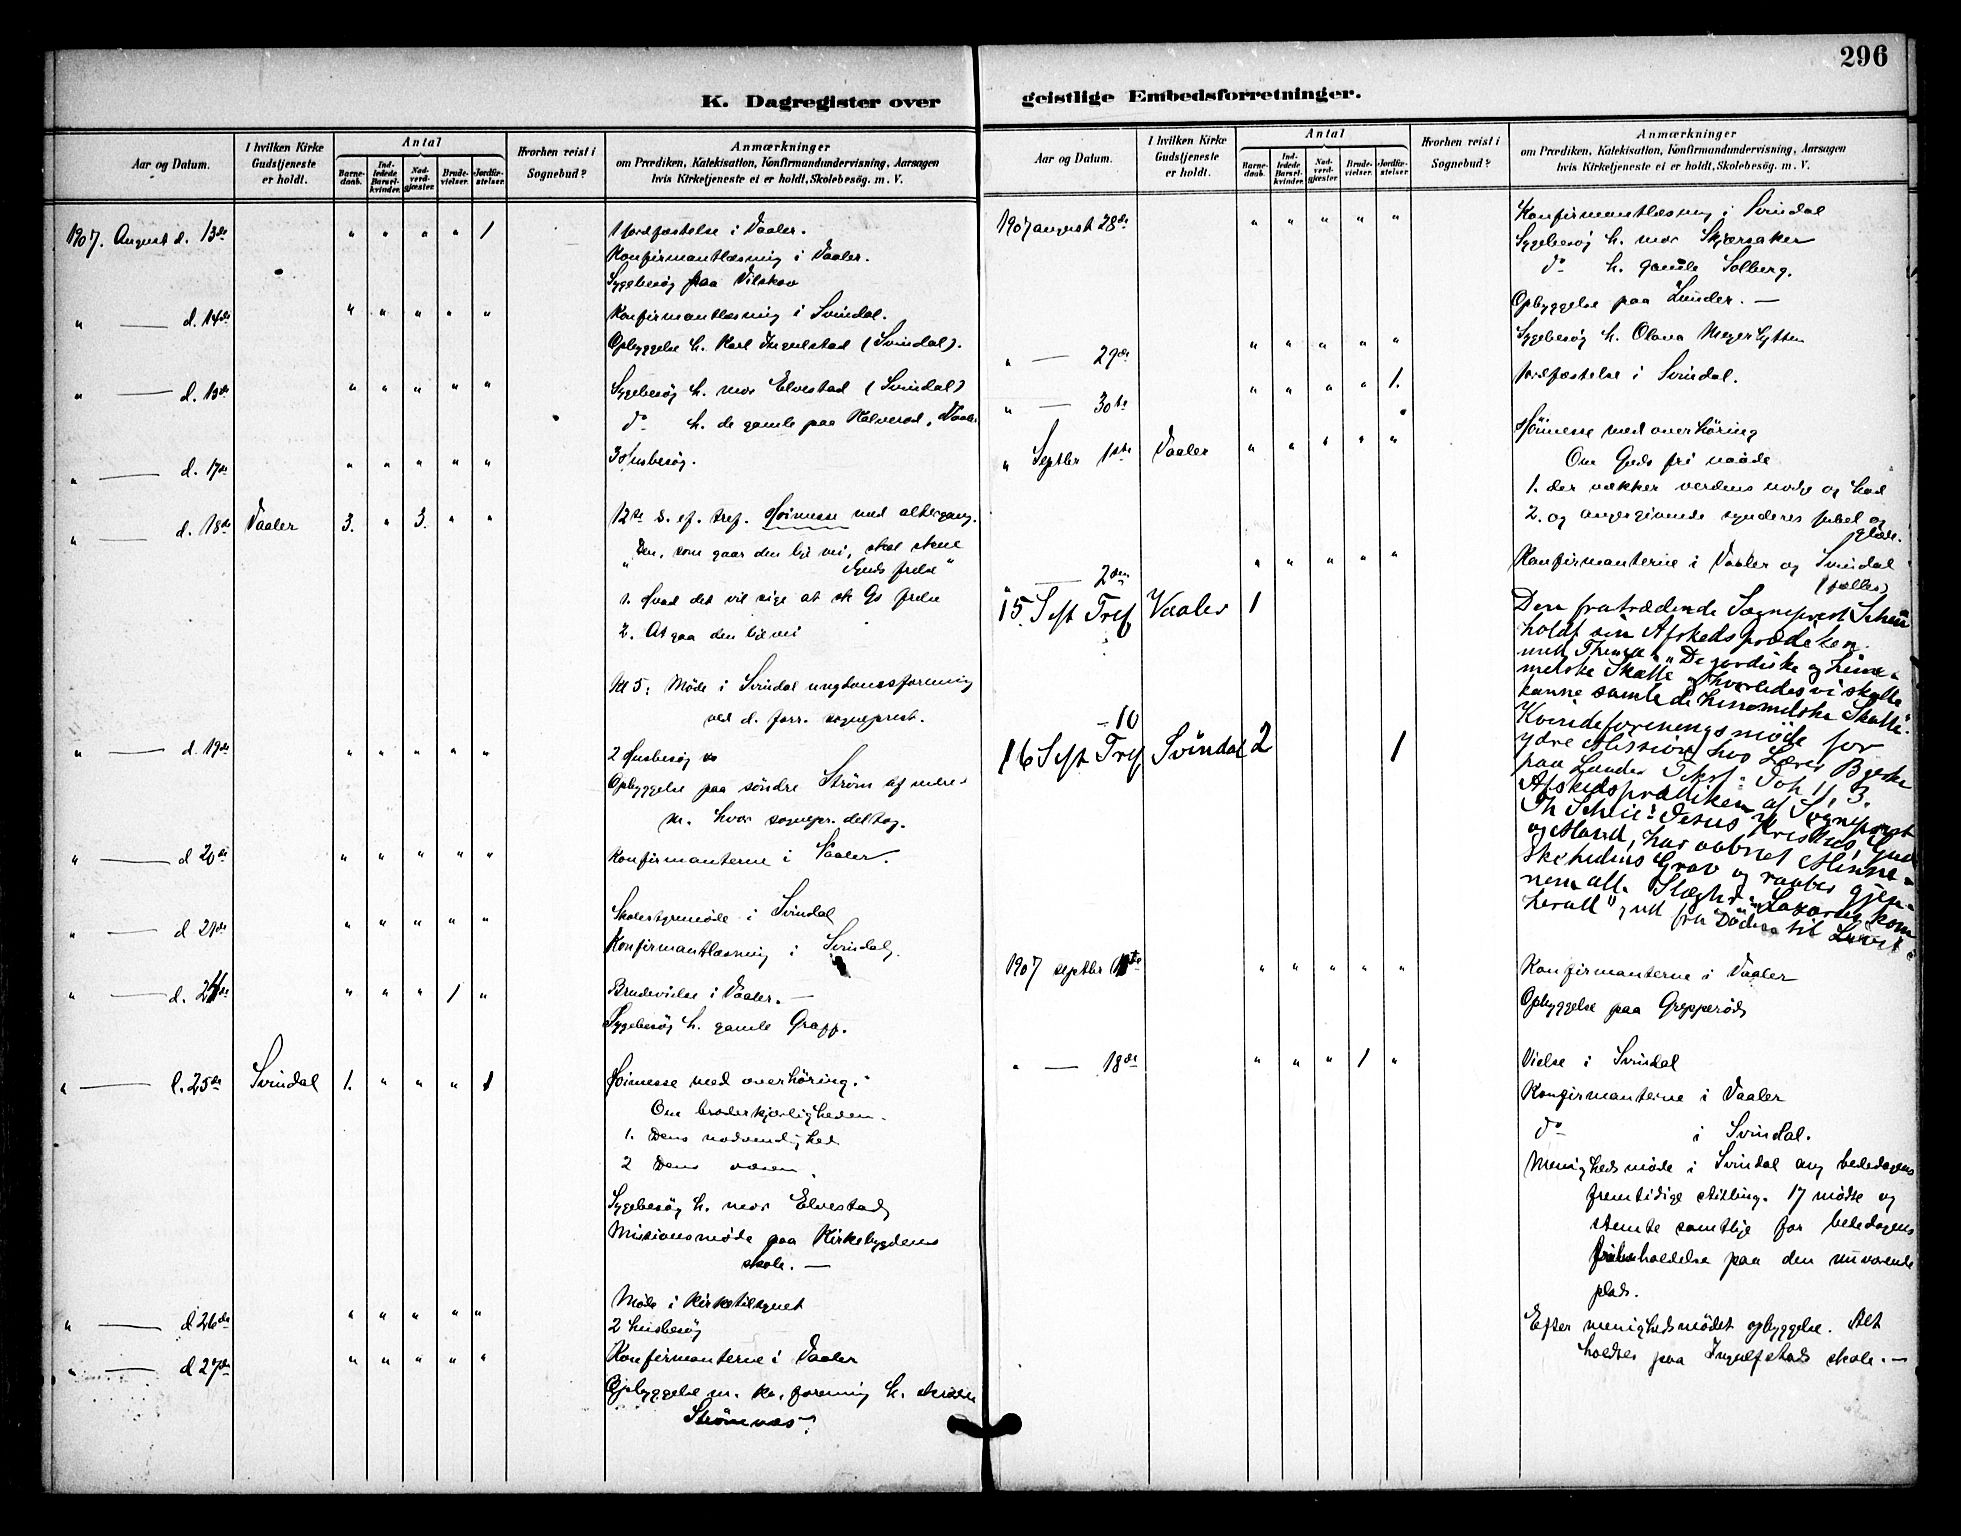 296
K. Dagregister over
geistlige Embedsforretninger.
Aar og Datum.
I hvilken Kirke Gudstjeneste er holdt.
Antal
Barnedaab.
Indledede Barselkvinder.
Nadverdgjæster
Brudevielser.
Jordfæstelser
Hvorhen reist i Sognebud?
Anmærkninger
om Prædiken, Katekisation, Konfirmandundervisning, Aarsagen
hvis Kirketjeneste ei er holdt, Skolebesøg. m. V.
1907. August d. 13de " " " " 1 1 Jordfæstelse i Vaaler.
Konfirmantlæsning i Vaaler.
Sygebesøg paa Vilskov
" — d. 14de " " " " " Konfirmantlæsning i Svindal.
Opbyggelse h. Karl Ingulstad (Svindal).
" — d. 15de " " " " " Sygebesøg h. mor Elvestad (Svindal)
do h. de gamle paa Halverød, Vaaler
" — d. 17de " " " " " 3 Husbesøg.
" — d. 18de Vaaler 3. " 3. " " 12te s. ef. tref. Høimesse med altergang.
" Den, som gaar den lige vei, skal skue
Guds frelse"
1. Hvad det vil sige at sk Gs frelse
2. At gaa den lige vei
Kl 5: Møde i Svindal ungdomsforening
ved d. forr. sogneprest.
" — d. 19de " " " " " 2 Husbesøg
Opbyggelse paa søndre Strøm af
hvor sognepr. deltog.
" — d 20de " " " " " Konfirmanterne i Vaaler.
" — d 21de " " " " " Skolestyremøde i Svindal
Konfirmantlæsning i Svindal.
" — d. 24de " " " 1 " Brudevielse i Vaaler. —
Sygebesøg h. gamle Grapp.
" — d. 25de Svindal 1. " " " 1 Høimesse med overhøring.
Om broderkjærligheden.
1. Dens nødvendighed
2 Dens væsen.
Sygebesøg h. mor Elvestad
Missionsmøde paa Kirkebygdens
skole. —
" — d 26de " " " " " Møde i Kirketilsynet
2 husbesøg
" — d 27de " " " " " Konfirmanterne i Vaaler
Opbyggelse m. kv. forening h.
Strømnæs.
Aar og Datum.
I hvilken Kirke Gudstjeneste er holdt.
Antal
Barnedaab.
Indledede Barselkvinder.
Nadverdgjæster
Brudevielser.
Jordfæstelser
Hvorhen reist i Sognebud?
Anmærkninger
om Prædiken, Katekisation, Konfirmandundervisning, Aarsagen
hvis Kirketjeneste ei er holdt, Skolebesøg. m. V.
1907 august 28de " " " " " Konfirmantlæsning i Svindal
Sygebesøg h. mor Skjærsaker
do h. gamle Solberg.
Opbyggelse paa Lunder. —
" — 29de " " " " " Sygebesøg h. Olava Meyerhytten
" — 30te " " " " 1. Jordfæstelse i Svindal.
" Septbr 1ste Vaaler " " " " " Høimesse med overhøring
Om Guds fri naade
1. der vækker verdens nage og had
2. og angergivende synderes jubel og
glæde.
" — 2den " " " " " Konfirmanterne i Vaaler og Svindal
(fælles)
15. Sept Tref Vaaler 1 Den fratrædende Sogneprest Schie
holdt sin Afskedsprædiken
med Thema: "De jordiske og himmelske
Skatte og hvorledes vi skulle
kunne samle de himmelske Skatte".
Kvindeforeningsmøde for
ydre Mission hos Lærer Bjerke
paa Lunder Tekst: Joh 11, 3.
— 10
16 Sept Tref Svindal 2 1 Afskedsprædiken af Sogneprest
Th Schie: "Jesus Kristus, Gud
og Mand, har aabnet Menneskehedens
Grav og raaber gjennem
alle Slægter: "Lazarus kom
herud", ud fra Døden til Livet".
1907 septbr " " " " " Konfirmanterne i Vaaler
Opbyggelse paa Grepperød
" — 18de " " " 1 " Vielse i Svindal
Konfirmanterne i Vaaler
do i Svindal.
Menighedsmøde i Svindal ang bededagens
fremtidige stilling. 17 mødte og
stemte samtlige for bededagens
holdelse paa den nuværende
plads.
Efter menighedsmødet opbyggelse. Alt
holdtes paa Ingulfstad skole. —